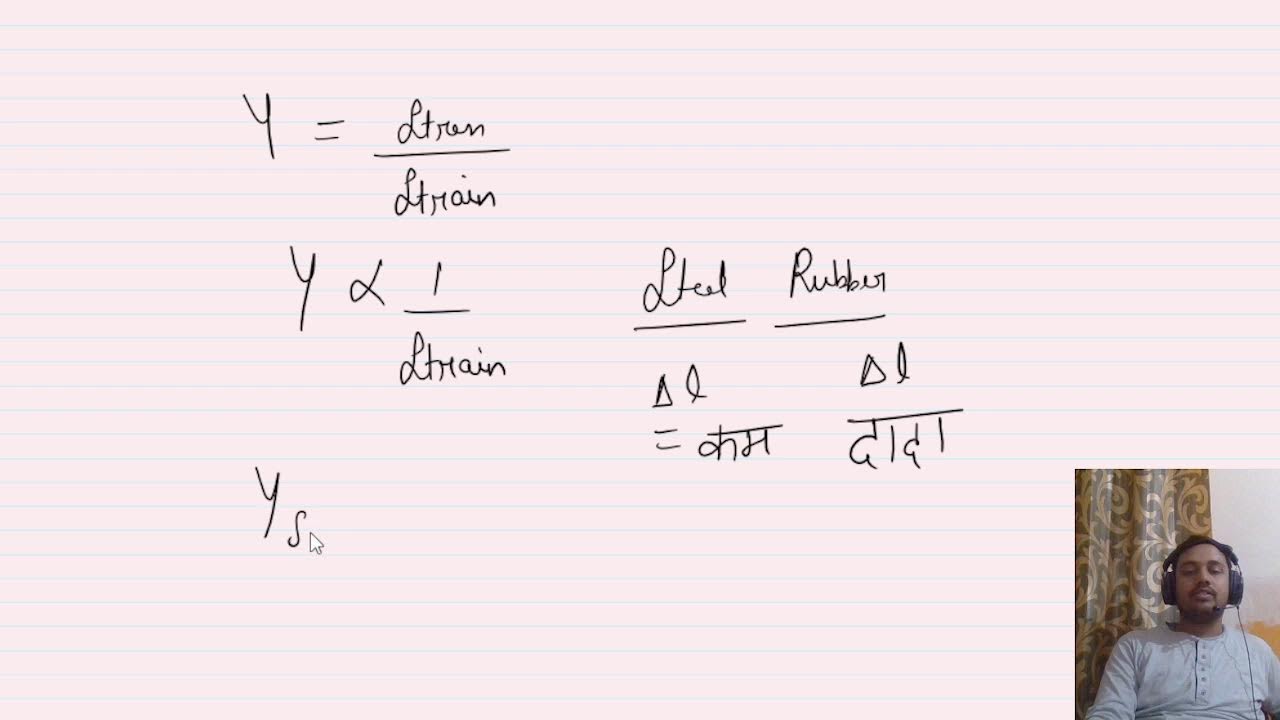 Y = Stress
Strain
Y ∝ 1
Strain
Steel Rubber
Δl Δl
= कम दादा
Y S